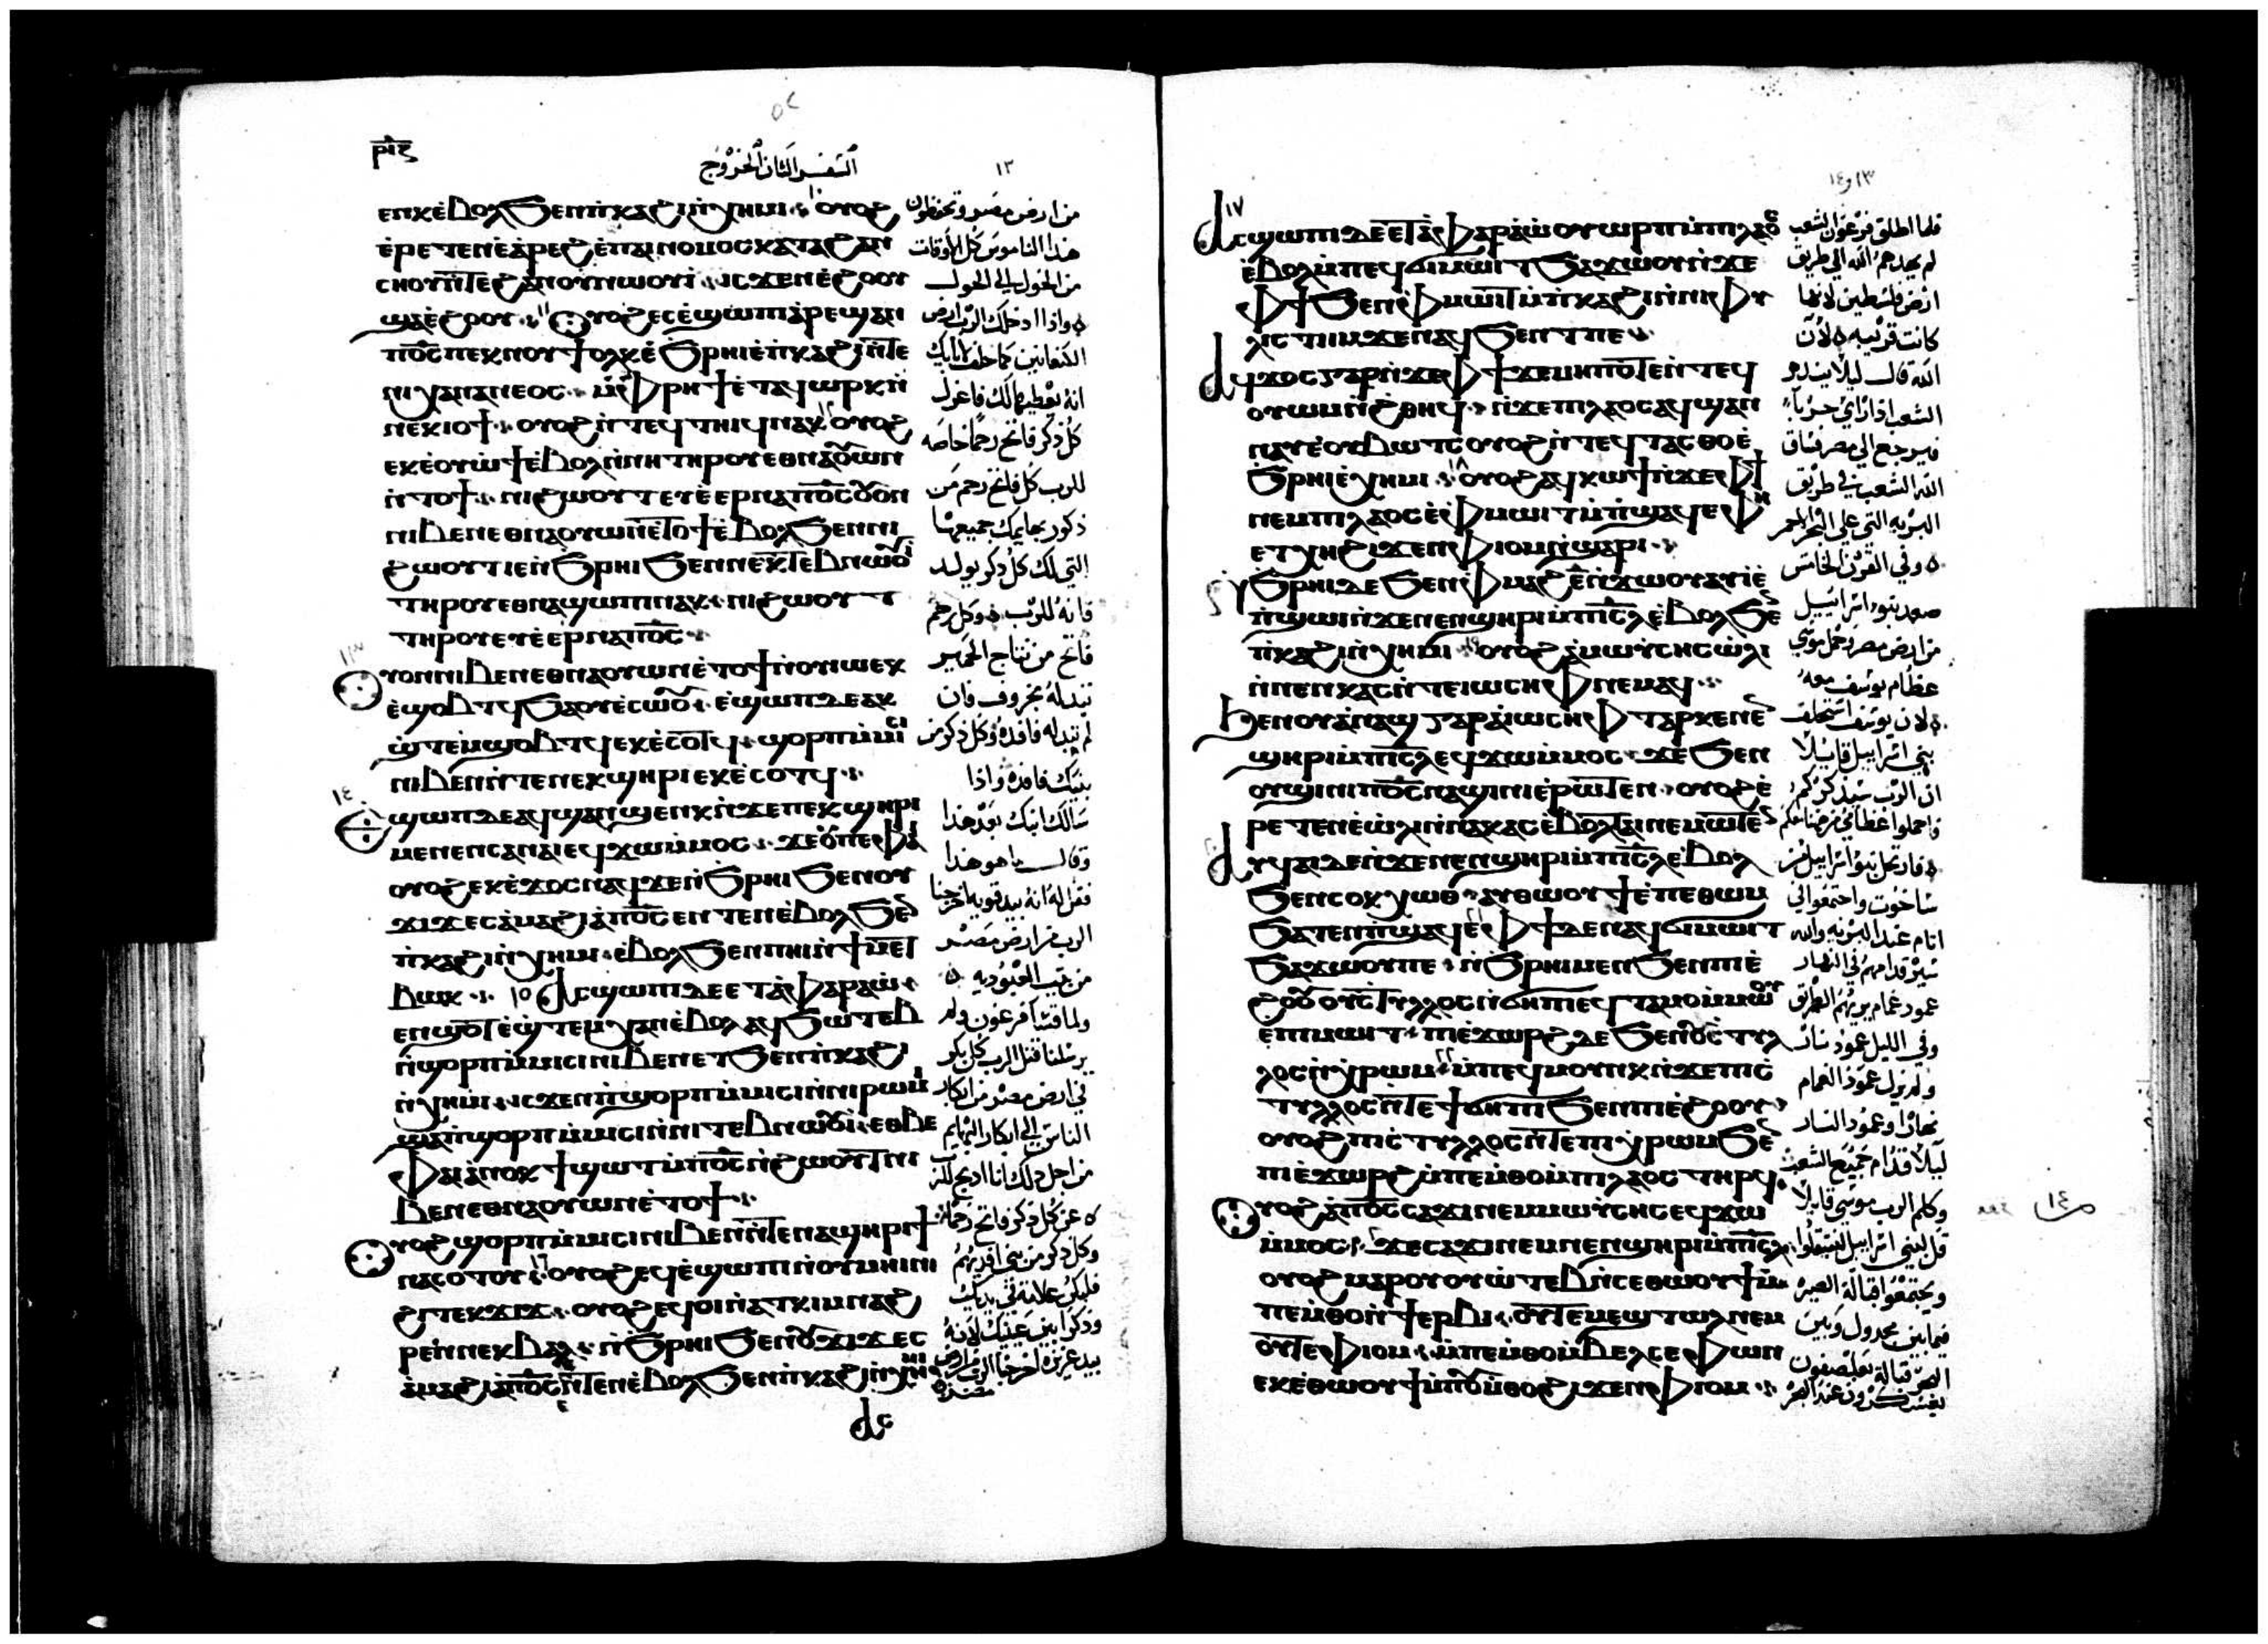 ⲣⲓⲋ
السفر الثاني الخروج
١٣
ⲉⲛⲕⲉⲃⲟⲗϧⲉⲛⲡ̀ⲕⲁϩⲓⲛ̀ⲭⲏⲙⲓ ⲟⲩⲟϩ
ⲉ̀ⲣⲉⲧⲉⲛⲉ̀ⲁ̀ⲣⲉϩ ⲉ̀ⲡⲁⲓⲛⲟⲙⲟⲥ ⲕⲁⲧⲁ ϩⲁⲛ
ⲥⲏⲟⲩⲛ̀ⲧⲉϩⲁⲛⲟⲩⲛⲱⲟⲩⲓ ⲓⲥϫⲉⲛⲉ̀ϩⲟⲟⲩ
ϣⲁⲉ̀ϩⲟⲟⲩ ⲟⲩⲟϩ ⲉⲥⲉ̀ϣⲱⲡⲓ ⲁⲣⲉϣⲁⲛ
ⲡ̀ⲟ̅ⲥ̅ⲡⲉⲕⲛⲟⲩϯ ⲟⲗⲕ ⲉ̀ϧⲣⲏⲓ ⲉ̀ⲡ̀ⲕⲁϩⲓ ⲛ̀ⲧⲉ
ⲛⲓⲭⲁⲛⲁⲛⲉⲟⲥ ⲙ̀ⲫⲣⲏϯ ⲉ̀ⲧⲁϥⲱⲣⲕ ⲛ̀
ⲛⲉⲕⲓⲟϯ ⲟⲩⲟϩ ⲛ̀ⲧⲉϥⲧⲏⲓϥ ⲛⲁⲕ ⲟⲩⲟϩ
ⲉⲕⲉ̀ⲟⲩⲱϯ ⲉ̀ⲃⲟⲗ ⲛ̀ⲛⲏ ⲧⲏⲣⲟⲩ ⲉⲑⲛⲁⲟⲩⲱⲛ
ⲛ̀ⲧⲟϯ ⲛⲓϩⲱⲟⲩⲧ ⲉⲩⲉ̀ⲉⲣⲛⲁⲡ̀ⲟ̅ⲥ̅ ⲟⲩⲟⲛ
ⲛⲓⲃⲉⲛ ⲉⲑⲛⲁⲟⲩⲱⲛ ⲛ̀ⲧⲟϯ ⲉ̀ⲃⲟⲗϧⲉⲛⲛⲓ
ϩⲱⲟⲩⲧ ⲓⲉ ⲛ̀ϧⲣⲏⲓ ϧⲉⲛⲛⲉⲕⲧⲉⲃⲛⲱⲟⲩⲓ
ⲧⲏⲣⲟⲩ ⲉⲑⲛⲁϣⲱⲡⲓ ⲛⲁⲕ ⲛⲓϩⲱⲟⲩⲧ
ⲧⲏⲣⲟⲩ ⲉⲩⲉ̀ⲉⲣⲛⲁⲡ̀ⲟ̅ⲥ̅
ⲟⲩⲟⲛ ⲛⲓⲃⲉⲛ ⲉⲑⲛⲁⲟⲩⲱⲛ ⲛ̀ⲧⲟϯ ⲛ̀ⲟⲩⲱ ⲉⲕ
ⲉ̀ϣⲟⲃⲧϥ ϧⲁⲟⲩⲉ̀ⲥⲱⲟⲩ ⲉϣⲱⲡ ⲇⲉ ⲁⲕ
ϣ̀ⲧⲉⲙϣⲟⲃⲧϥ ⲉⲕⲉ̀ⲥⲟⲧϥ ϣⲟⲣⲡ ⲙ̀ⲙⲓⲥⲓ
ⲛⲓⲃⲉⲛ ⲛ̀ⲧⲉ ⲛⲉⲕϣⲏⲣⲓ ⲉⲕⲉ̀ⲥⲟⲧϥ
ⲉϣⲱⲡ ⲇⲉ ⲁϥϣⲁⲛϣⲉⲛⲕ ⲛ̀ϫⲉ ⲡⲉⲕϣⲏⲣⲓ
ⲙⲉⲛⲉⲛⲥⲁⲛⲁⲓ ⲉϥϫⲱ ⲙ̀ⲙⲟⲥ ϫⲉ ⲟⲩ ⲡⲉ ⲫⲁⲓ
ⲟⲩⲟϩ ⲉⲕⲉ̀ϫⲟⲥ ⲛⲁϥ ϫⲉ ⲛ̀ϧⲣⲏⲓ ϧⲉⲛ ⲟⲩ
ϫⲓϫ ⲉⲥⲁ̀ⲙⲁϩⲓ ⲁ̀ ⲡ̀ⲟ̅ⲥ̅ ⲉⲛⲧⲉⲛ ⲉ̀ⲃⲟⲗ ϧⲉⲛ
ⲡ̀ⲕⲁϩⲓ ⲛ̀ⲭⲏⲙⲓ ⲉ̀ⲃⲟⲗ ϧⲉⲛ ⲡⲏⲓ ⲛ̀ϯⲙⲉⲧ
ⲃⲱⲕ ١٥ ⲁⲥϣⲱⲡⲓ ⲇⲉ ⲉⲧⲁ ⲫⲁⲣⲁⲱ̀
ⲉⲛϣⲟⲧ ⲉ̀ϣ̀ⲧⲉⲙⲭⲁⲛ ⲉ̀ⲃⲟⲗ ⲁϥϧⲱⲧⲉⲃ
ⲛ̀ϣⲟⲣⲡ ⲙ̀ⲙⲓⲥⲓ ⲛⲓⲃⲉⲛ ⲉⲧϧⲉⲛ ⲡ̀ⲕⲁϩⲓ
ⲛ̀ⲭⲏⲙⲓ ⲓⲥϫⲉⲛ ⲡ̀ϣⲟⲣⲡ ⲙ̀ⲙⲓⲥⲓ ⲛ̀ⲛⲓⲣⲱⲙⲓ
ϣⲁ ⲡ̀ϣⲟⲣⲡ ⲙ̀ⲙⲓⲥⲓ ⲛ̀ⲛⲓⲧⲉⲃⲛⲱⲟⲩⲓ ⲉⲑⲃⲉ
ⲫⲁⲓ ⲁ̀ⲛⲟⲕ ϯϣⲱⲧ ⲙ̀ⲡ̀ⲟ̅ⲥ̅ ⲛ̀ϩⲱⲟⲩⲧ ⲛⲓ
ⲃⲉⲛ ⲉⲑⲛⲁⲟⲩⲱⲛ ⲛ̀ⲧⲟϯ
ⲟⲩⲟϩ ϣⲟⲣⲡ ⲙ̀ⲙⲓⲥⲓ ⲛⲓⲃⲉⲛ ⲛ̀ⲧⲉ ⲛⲁϣⲏⲣⲓ ϯ
ⲛⲁⲥⲟⲧⲟⲩ ١٦ ⲟⲩⲟϩ ⲉϥⲉ̀ϣⲱⲡⲓ ⲛ̀ⲟⲩⲙⲏⲓⲛⲓ
ϩⲓ ⲧⲉⲕϫⲓϫ ⲟⲩⲟϩ ⲉϥⲟⲓ ⲛ̀ⲁⲧⲕⲓⲙ ⲛⲁϩ
ⲣⲉⲛ ⲛⲉⲕⲃⲁⲗ ⲛ̀ϧⲣⲏⲓ ϧⲉⲛ ⲟⲩϫⲓϫ ⲉⲥ
ⲁ̀ⲙⲁϩⲓ ⲁ̀ ⲡ̀ⲟ̅ⲥ̅ ⲉⲛⲧⲉⲛ ⲉ̀ⲃⲟⲗ ϧⲉⲛ ⲡ̀ⲕⲁϩⲓ ⲛ̀ⲭⲏⲙⲓ
ⲁⲥ
من ارض مصر وتحفظون
هذا الناموس كل الاوقات
من الحول الى الحول
واذا ادخلك الرب ارض
الكنعانيين كما حلف لابايك
انه يعطيها لك فاعزل
كل ذكر فاتح رحما خاصه
للرب كل فاتح رحم من
ذكور بهايمك جميعها
التي لك كل ذكر يولد
فانه للرب وكل رحم
فاتح من نتاج الحمير
تبدله بخروف فان
لم تبدله فافده وكل ذكر من
بنيك فافده واذا
سالك ابنك بعد هذا
وقال ما هو هذا
فقل له انه بيد قويه اخرجنا
الرب من ارض مصر
من بيت العبوديه
ولما قسا فرعون ولم
يرسلنا قتل الرب كل بكر
في ارض مصر من ابكار
الناس الى ابكار البهايم
من اجل ذلك انا اذبح للرب
عن كل ذكر فاتح رحما
وكل ذكر من بني افديهم
فليكن علامة في يديك
وذكرا بين عينيك لانه
بيد عزيزه اخرجنا الرب من ارض
مصر
١٣ و١٤
١٧ ⲁⲥϣⲱⲡⲓ ⲇⲉ ⲉⲧⲁ ⲫⲁⲣⲁⲱ̀ ⲟⲩⲱⲣⲡ ⲙ̀ⲡⲓⲗⲁⲟⲥ
ⲉ̀ⲃⲟⲗ ⲙ̀ⲡⲉϥϭⲓⲙⲱⲓⲧ ϧⲁϫⲱⲟⲩ ⲛ̀ϫⲉ
ⲫϯ ϧⲉⲛ ⲫⲙⲱⲓⲧ ⲙ̀ⲡ̀ⲕⲁϩⲓ ⲛ̀ⲛⲓⲫⲩ
ⲗⲓⲥⲧⲓⲙ ϫⲉ ⲛⲁϥϧⲉⲛⲧ ⲡⲉ
ⲁϥϫⲟⲥ ⲅⲁⲣ ⲛ̀ϫⲉ ⲫϯ ϫⲉ ⲙⲏⲡⲟⲧⲉ ⲛ̀ⲧⲉϥ
ⲟⲩⲱⲙ ⲛ̀ϩⲑⲏϥ ⲛ̀ϫⲉ ⲡⲓⲗⲁⲟⲥ ⲁϥϣⲁⲛ
ⲛⲁⲩ ⲉ̀ⲟⲩⲃⲱⲧⲥ ⲟⲩⲟϩ ⲛ̀ⲧⲉϥⲧⲁⲥⲑⲟ ⲉ̀
ϧⲣⲏⲓ ⲉ̀ⲭⲏⲙⲓ ١٨ ⲟⲩⲟϩ ⲁϥⲕⲱϯ ⲛ̀ϫⲉ ⲫϯ
ⲛⲉⲙ ⲡⲓⲗⲁⲟⲥ ⲉ̀ⲫⲙⲱⲓⲧ ⲙ̀ⲡ̀ϣⲁϥⲉ ⲫⲏ
ⲉⲧⲭⲏ ϩⲓϫⲉⲛ ⲫⲓⲟⲙ ⲛ̀ϣⲁⲣⲓ
ⲛ̀ϧⲣⲏⲓ ⲇⲉ ϧⲉⲛ ⲫⲙⲁϩⲉ̅ ⲛ̀ϫⲱⲟⲩ ⲁⲩⲓ ⲉ̀
ⲡ̀ϣⲱⲓ ⲛ̀ϫⲉ ⲛⲉⲛϣⲏⲣⲓ ⲙ̀ⲡⲓ̅ⲥ̅ⲗ̅ ⲉ̀ⲃⲟⲗ ϧⲉⲛ
ⲡ̀ⲕⲁϩⲓ ⲛ̀ⲭⲏⲙⲓ ١٩ ⲟⲩⲟϩ ⲁ̀ ⲙⲱⲩⲥⲏⲥ ⲱ̀ⲗⲓ
ⲛ̀ⲛⲉⲛⲕⲁⲥ ⲛ̀ⲧⲉ ⲓⲱⲥⲏⲫ ⲛⲉⲙⲁϥ
ϧⲉⲛ ⲟⲩⲁ̀ⲛⲁϣ ⲅⲁⲣ ⲁ̀ ⲓⲱⲥⲏⲫ ⲧⲁⲣⲕⲉ ⲛⲉⲛ
ϣⲏⲣⲓ ⲙ̀ⲡⲓ̅ⲥ̅ⲗ̅ ⲉϥϫⲱ ⲙ̀ⲙⲟⲥ ϫⲉ ϧⲉⲛ
ⲟⲩϣⲓⲛⲓ ⲡ̀ⲟ̅ⲥ̅ ⲛⲁϣⲓⲛⲓ ⲉ̀ⲣⲱⲧⲉⲛ ⲟⲩⲟϩ ⲉ̀
ⲣⲉⲧⲉⲛⲉ̀ⲱ̀ⲗⲓ ⲛ̀ⲛⲁⲕⲁⲥ ⲉ̀ⲃⲟⲗ ⲧⲁⲓ ⲛⲉⲙⲱⲧⲉⲛ
ⲁⲩϥⲁⲓ ⲇⲉ ⲛ̀ϫⲉ ⲛⲉⲛϣⲏⲣⲓ ⲙ̀ⲡⲓ̅ⲥ̅ⲗ̅ ⲉ̀ⲃⲟⲗ
ϧⲉⲛ ⲥⲟⲕⲭⲱⲑ ⲁⲩⲑⲱⲟⲩϯ ⲉ̀ⲡⲉⲑⲱⲙ
ϧⲁⲧⲉⲛ ⲡ̀ϣⲁϥⲉ ⲫϯ ⲇⲉ ⲛⲁϥϭⲓⲙⲱⲓⲧ
ϧⲁϫⲱⲟⲩ ⲡⲉ ⲛ̀ϧⲣⲏⲓ ⲙⲉⲛ ϧⲉⲛ ⲡⲓⲉ̀
ϩⲟⲟⲩ ⲟⲩⲥⲧⲩⲗⲗⲟⲥ ⲛ̀ϭⲏⲡⲓ ⲉϥⲧⲁⲙⲟ ⲙ̀ⲙⲱⲟⲩ
ⲉ̀ⲡⲓⲙⲱⲓⲧ ⲡⲓⲉ̀ϫⲱⲣϩ ⲇⲉ ϧⲉⲛ ⲟⲩⲥⲧⲩⲗ
ⲗⲟⲥ ⲛ̀ⲭⲣⲱⲙ ٢٢ ⲙ̀ⲡⲉϥⲙⲟⲩⲛⲕ ⲛ̀ϫⲉ ⲡⲓⲥ
ⲧⲩⲗⲗⲟⲥ ⲛ̀ⲧⲉ ϯϭⲏⲡⲓ ϧⲉⲛ ⲡⲓⲉ̀ϩⲟⲟⲩ
ⲟⲩⲟϩ ⲡⲓⲥⲧⲩⲗⲗⲟⲥ ⲛ̀ⲧⲉ ⲡⲓⲭⲣⲱⲙ ϧⲉⲛ
ⲡⲓⲉ̀ϫⲱⲣϩ ⲙ̀ⲡⲉⲙ̀ⲑⲟ ⲙ̀ⲡⲓⲗⲁⲟⲥ ⲧⲏⲣϥ
ⲟⲩⲟϩ ⲁ̀ ⲡ̀ⲟ̅ⲥ̅ ⲥⲁϫⲓ ⲛⲉⲙ ⲙⲱⲩⲥⲏⲥ ⲉϥϫⲱ
ⲙ̀ⲙⲟⲥ ϫⲉ ⲥⲁϫⲓ ⲛⲉⲙ ⲛⲉⲛϣⲏⲣⲓ ⲙ̀ⲡⲓ̅ⲥ̅ⲗ̅
ⲟⲩⲟϩ ⲙⲁⲣⲟⲩⲟⲩⲱ̀ⲧⲉⲃ ⲛ̀ⲥⲉⲑⲱⲟⲩϯ ⲙ̀
ⲡⲉⲙ̀ⲑⲟ ⲛ̀ϯⲉⲣⲃⲓ ⲟⲩⲧⲉ ⲙⲉϣⲧⲱⲗ ⲛⲉⲙ
ⲟⲩⲧⲉ ⲫⲓⲟⲙ ⲙ̀ⲡⲉⲙ̀ⲑⲟ ⲙ̀ⲃⲉⲗⲥⲉⲫⲱⲛ
ⲉⲕⲉ̀ⲑⲱⲟⲩϯ ⲙ̀ⲡⲟⲩⲙ̀ⲑⲟ ϩⲓϫⲉⲛ ⲫⲓⲟⲙ
فلما اطلق فرعون الشعب
لم يهدهم الله الى طريق
ارض فلسطين لانها
كانت قريبه لان
الله قال ليلا يندم
الشعب اذا راى حربا
فيرجع الى مصر فساق
الله الشعب في طريق
البريه التي على البحر الاحمر
وفي القرن الخامس
صعد بنو اسراييل
من ارض مصر وحمل موسى
عظام يوسف معه
لان يوسف استحلف
بني اسراييل قايلا
ان الرب سيذكركم
فاحملوا عظامي من ههنا معكم
فارتحل بنو اسراييل من
ساخوت واجتمعوا الى
اثام عند البريه والله
يسير قدامهم في النهار
عمود غمام يريهم الطريق
وفي الليل عمود نار
ولم يزل عمود الغمام
نهارا وعمود النار
ليلا قدام جميع الشعب
وكلم الرب موسى قايلا
قل لبني اسراييل لينتقلوا
ويجتمعوا قبالة الصيره
فيما بين مجدول وبين
البحر قبالة بعلصفون
ص ١٤